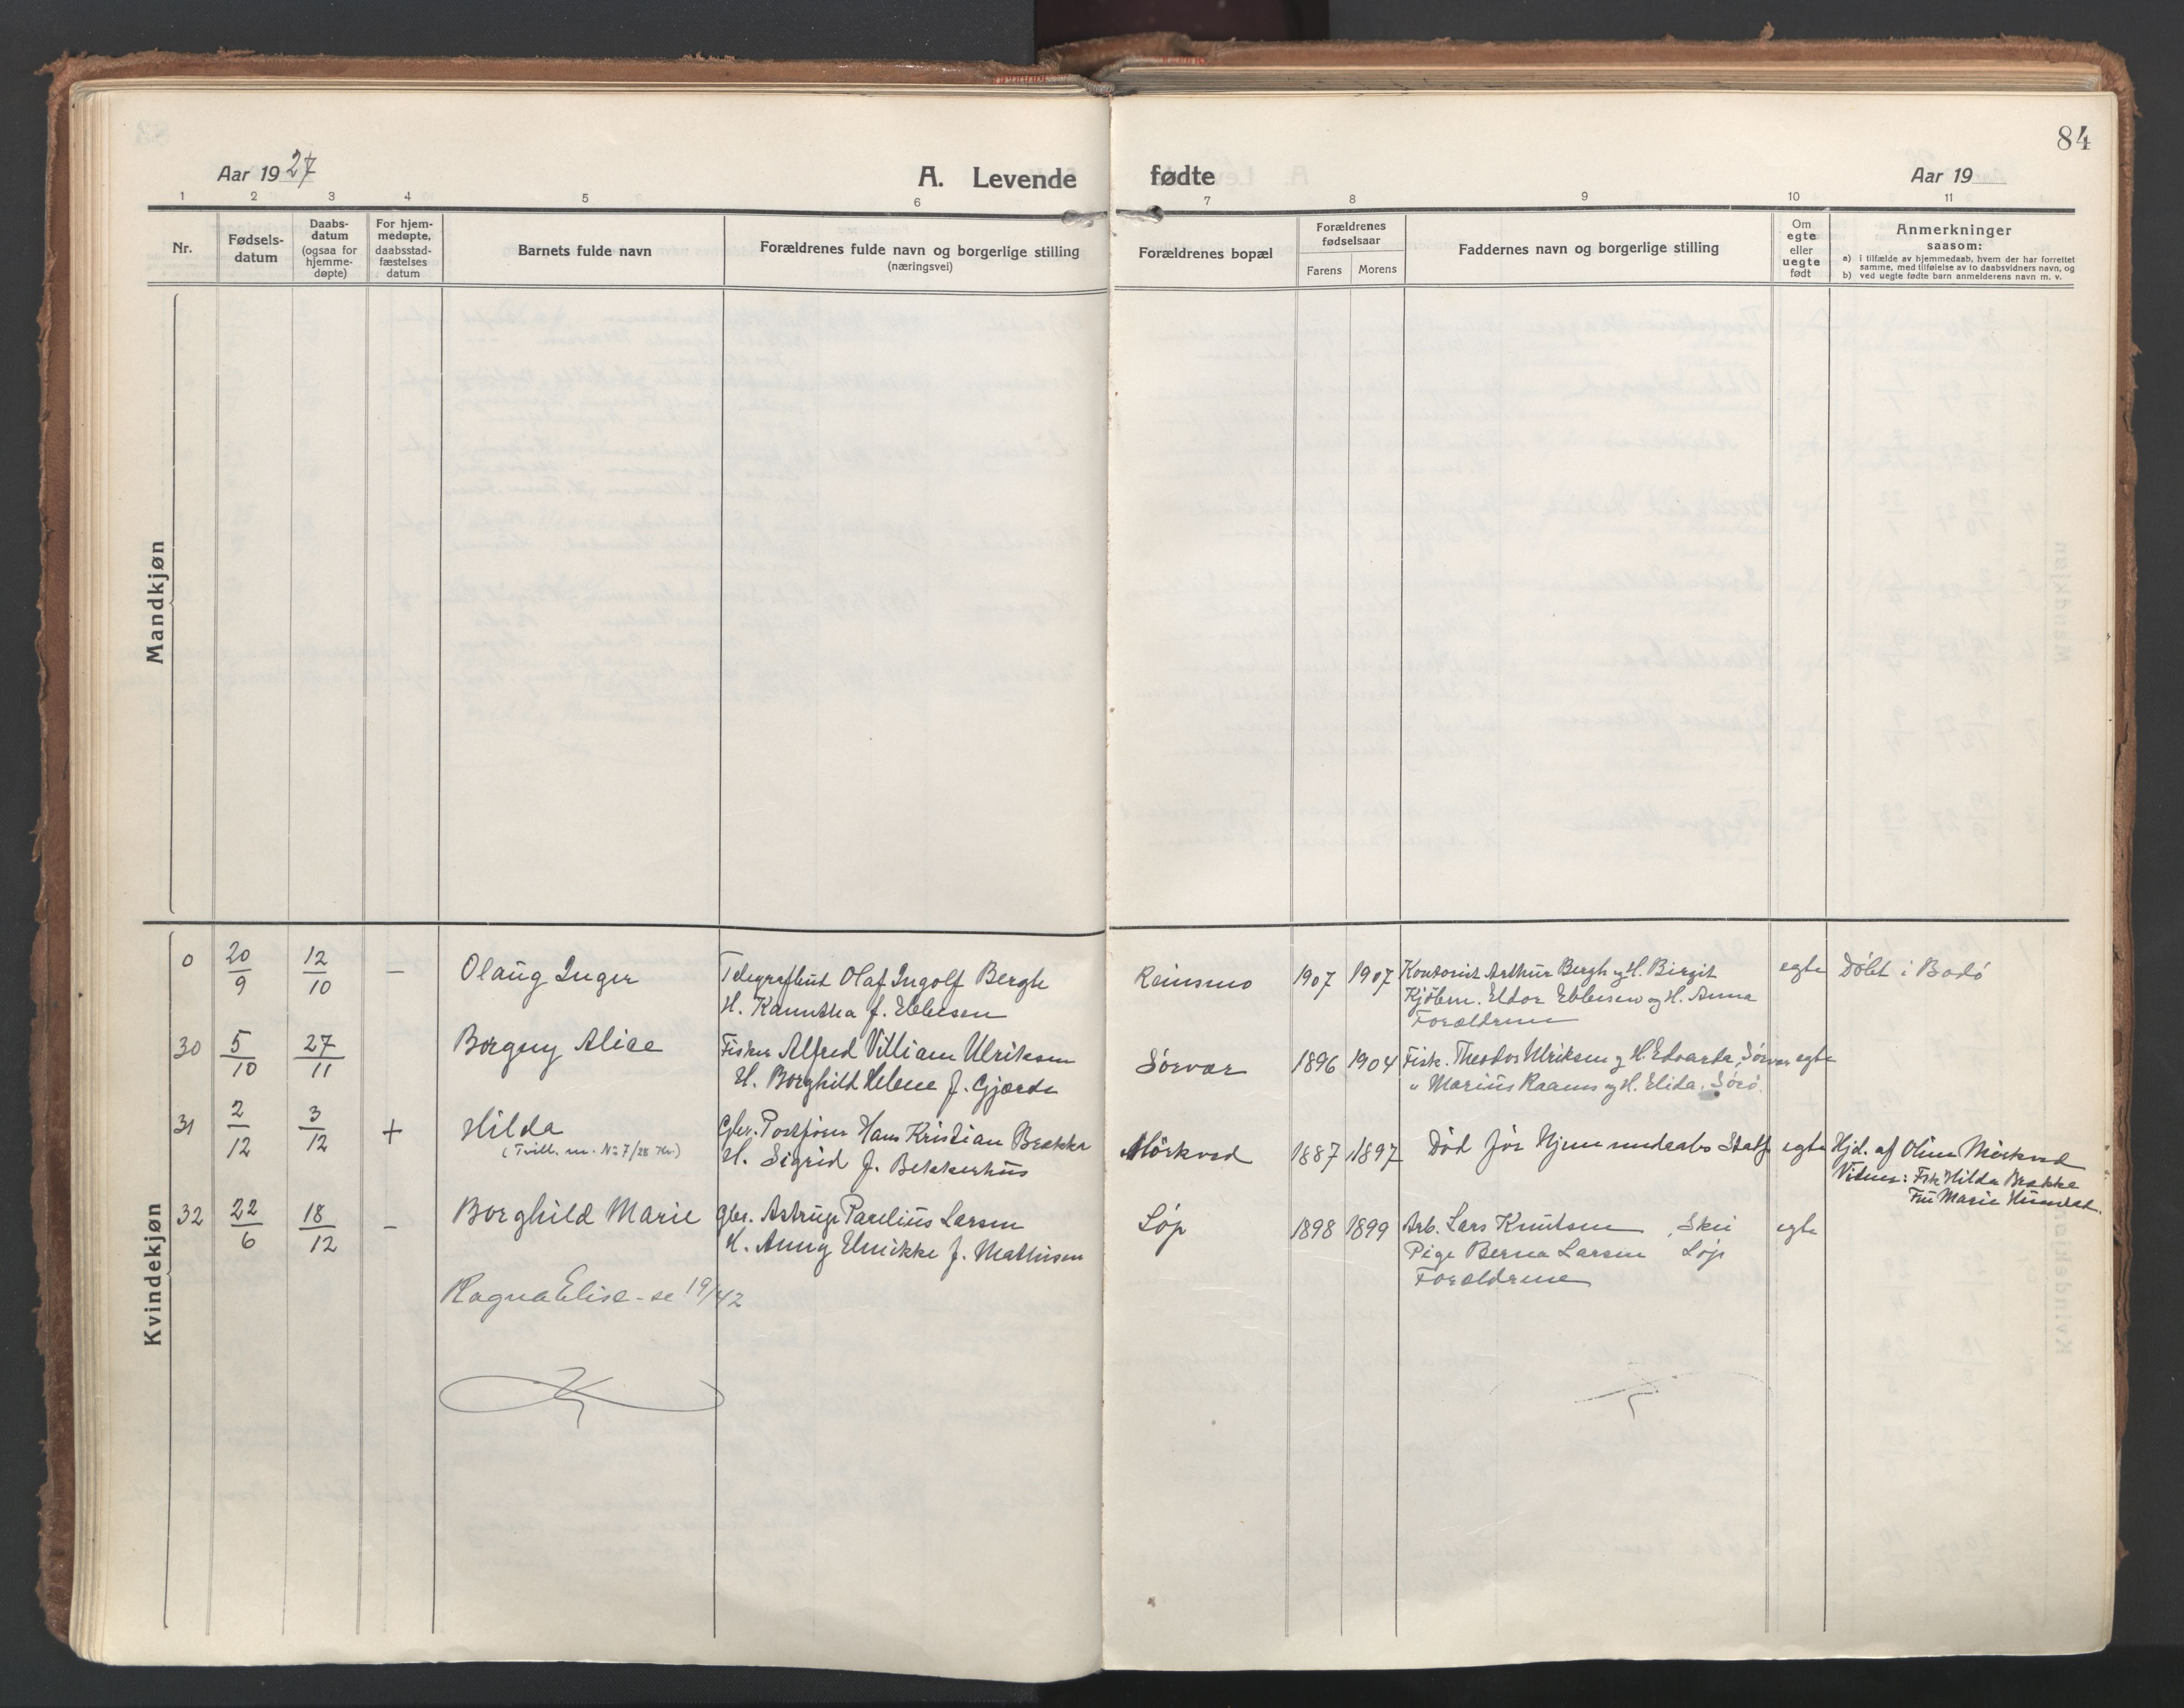 84
Aar 1927
A. Levende fødte
Aar 19
1 2 3 4 5 6 7 8 9 10 11
Nr.
Fødsels-
datum
Daabs-
datum
(ogsaa for
hjemme-
døpte)
For hjem-
medøpte,
daabsstad-
fæstelses
datum
Barnets fulde navn
Forældrenes fulde navn og borgerlige stilling
(næringsvei)
Forældrenes bopæl
Forældrenes
fødselsaar
Farens Morens
Faddernes navn og borgerlige stilling
Om
egte
eller
uegte
født
Anmerkninger
saasom:
a) i tilfælde av hjemmedaab, hvem der har forrettet
samme, med tilføielse av to daabsvidners navn, og
b) ved uegte fødte barn anmelderens navn m. v.
Mandkjøn
Kvindekjøn
0 20/9 12/10 – Olaug Inger
Olaf Ingolf Bergh
H. f. Ebbesen
1907 1907
Kontorist Arthur Bergh og H. Birgit
Kjøbm. Eldor Ebbesen og H. Anna
Forældrene
egte Døbt i Bodø
30 5/10 27/11 Borgny Alice
Fisker Alfred Villiam Ulriksen
H. Borghild Helene f. Gjærde
Sørvær 1896 1904
Fisk. Theodor Ulriksen og H. Edvarda, Sørvær
" Marius Raanes og H. Elida, Sørø.
egte
31 2/12 3/12 + Hilda
(Tvill. m. No 7/28 Kv.)
Gbr. Hans Kristian Brække
H. Sigrid f. Bekkerhus
Mørkved 1887 1897
Død før Hjemmedaabs Stadf.
egte
Hjd. af Oline Mørkved
Vidner: Frk Hilda Brække
Fru Marie
32 22/6 18/12 – Borghild Marie
Gbr. Astrup Parelius Larsen
H. Anny f. Mathisen
Løp 1898 1899
Arb. Lars Knutsen, Skei
Pige Berna Larsen Løp
Forældrene
egte
Ragna Elise - se 19/42